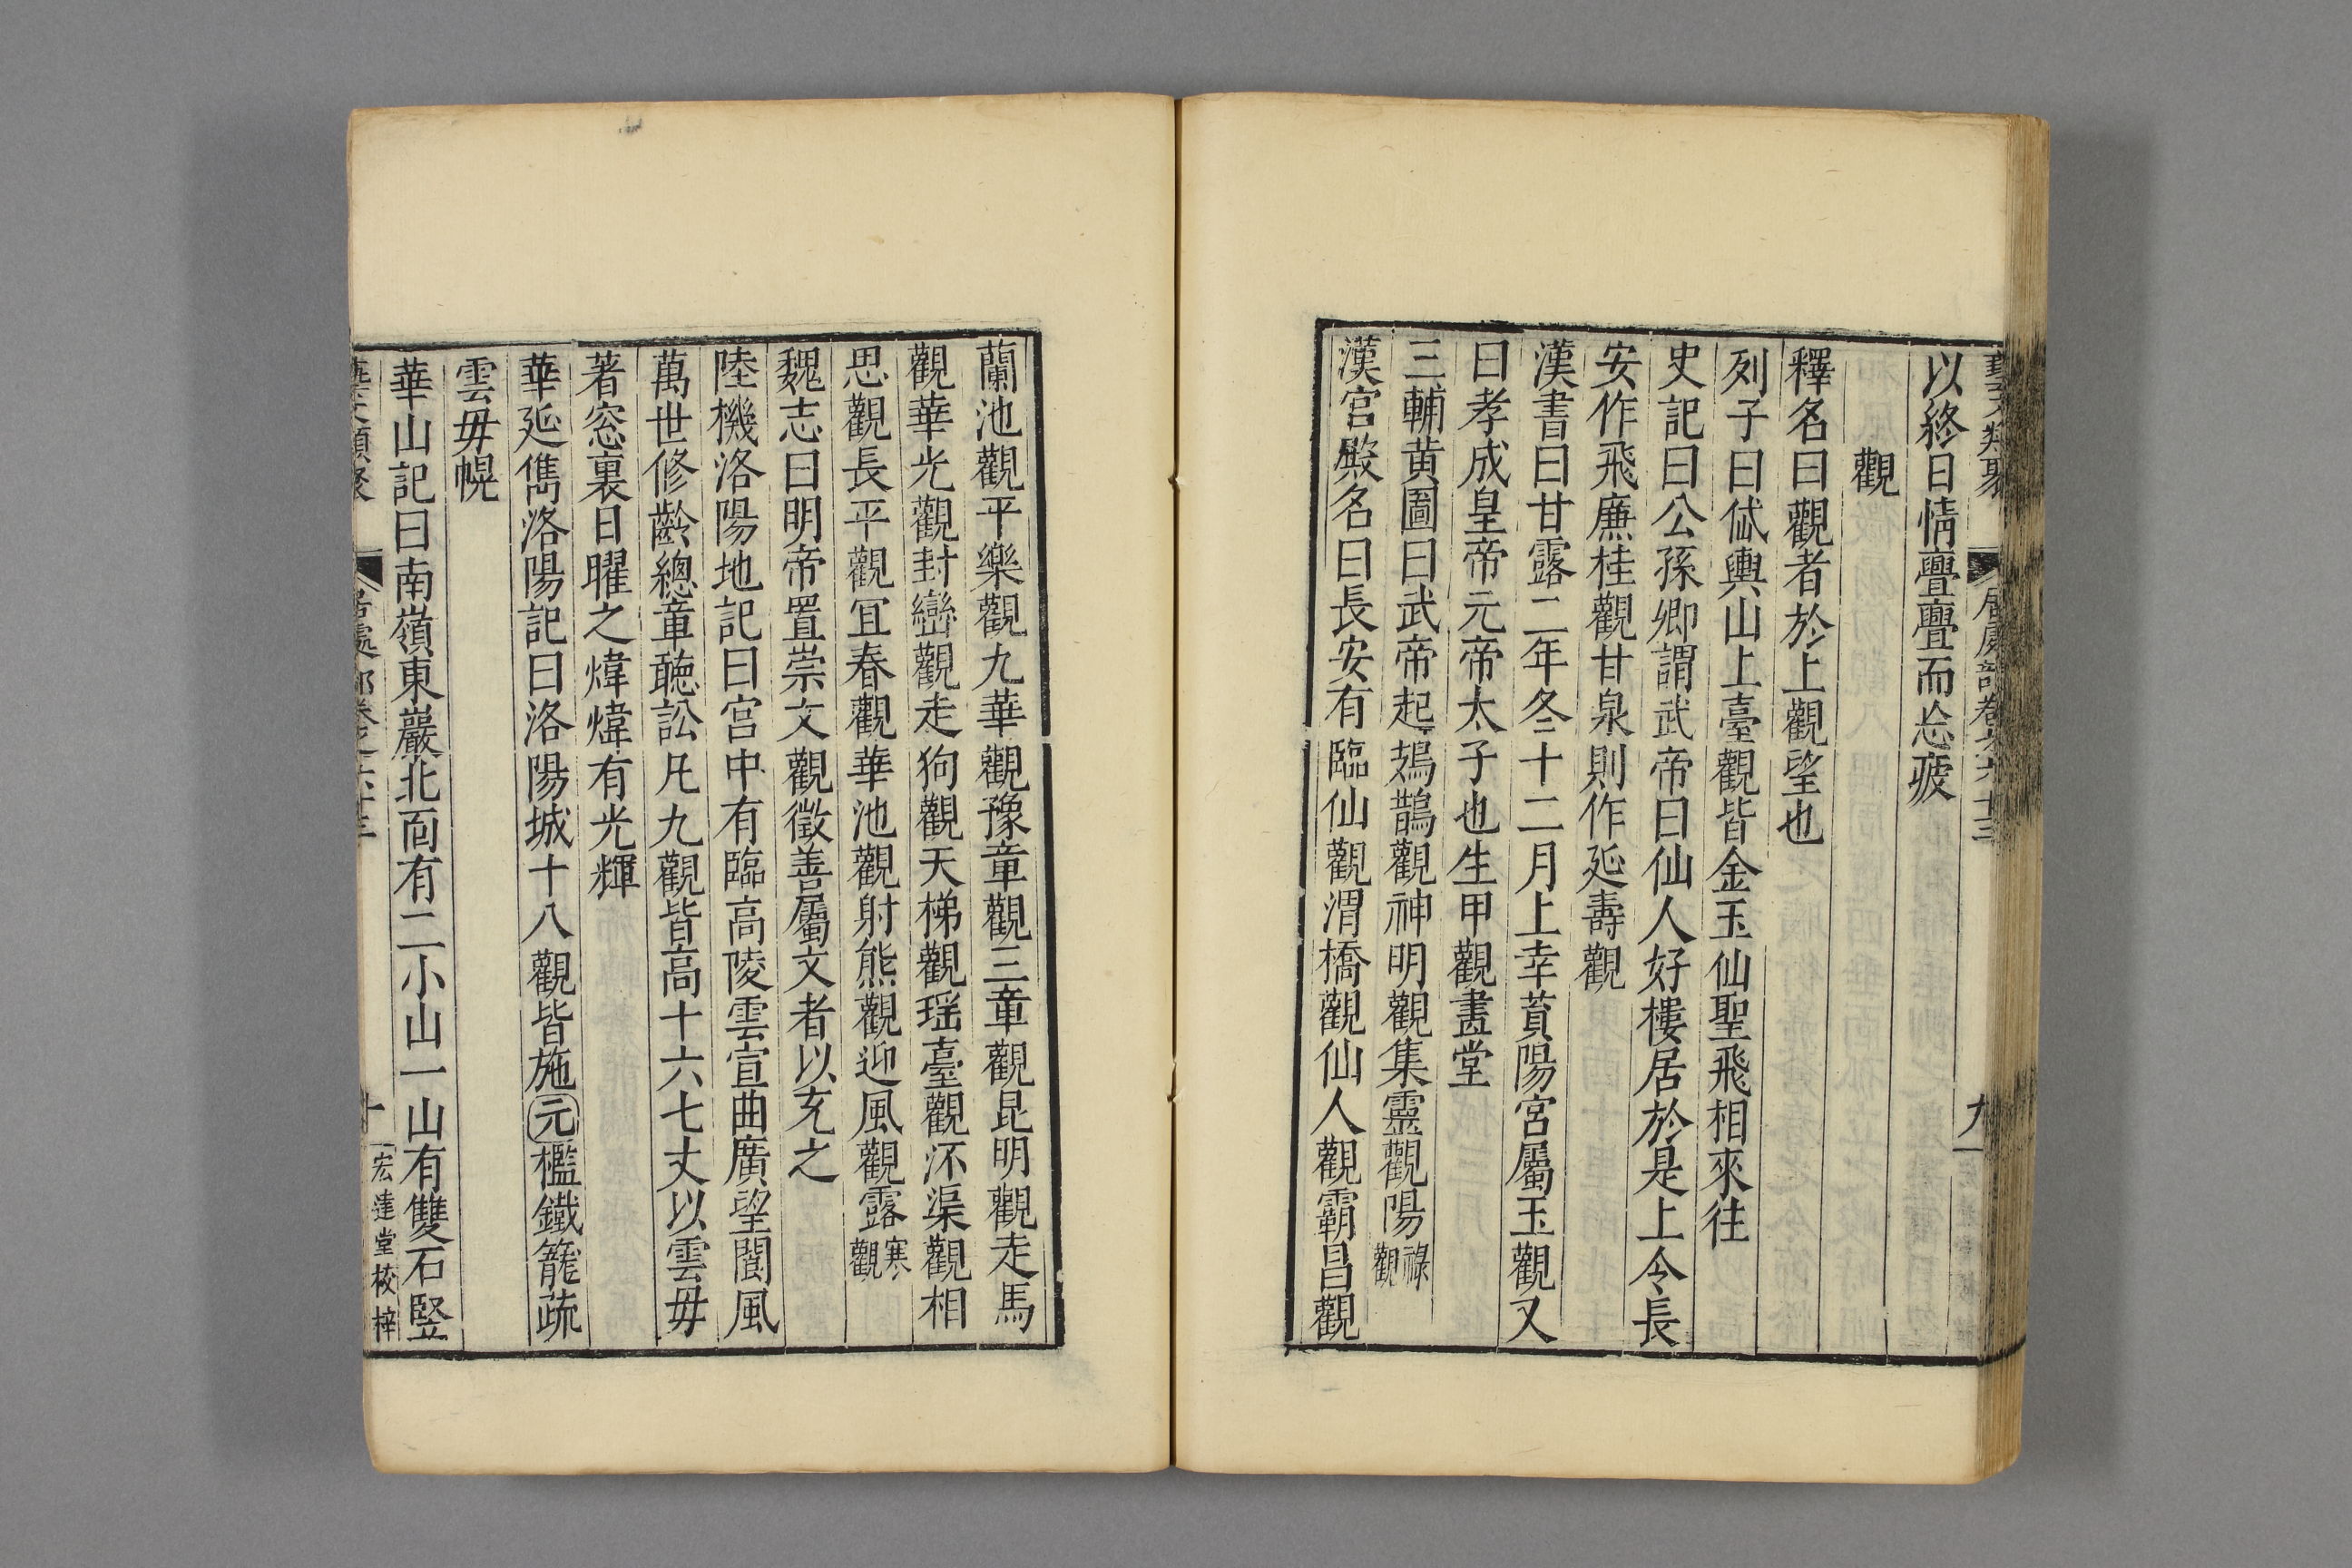 藝文類聚 居處部卷之六十三 九
以終日情亹亹而忘疲
觀
釋名曰觀者於上觀望也
列子曰岱輿山上臺觀皆金玉仙聖飛相來往
史記曰公孫卿謂武帝曰仙人好樓居於是上令長
安作飛廉桂觀甘泉則作延壽觀
漢書曰甘露二年冬十二月上幸萯陽宮屬玉觀又
曰孝成皇帝元帝太子也生甲觀畫堂
三輔黄圖曰武帝起鳷鵲觀神明觀集靈觀陽祿觀
漢宮殿名曰長安有臨仙觀渭橋觀仙人觀霸昌觀
蘭池觀平樂觀九華觀豫章觀三章觀昆明觀走馬
觀華光觀封巒觀走狗觀天梯觀瑶臺觀渠觀相
思觀長平觀冝春觀華池觀射熊觀迎風觀露寒觀
魏志曰明帝置崇文觀徵善屬文者以充之
陸機洛陽地記曰宮中有臨高陵雲宣曲廣望閬風
萬世修齡總章聽訟凡九觀皆高十六七丈以雲毋
著窓裏日曜之煒煒有光輝
華延儁洛陽記曰洛陽城十八觀皆施元檻鐵籠疏
雲毋幌
華山記曰南嶺東巖北面有二小山一山有雙石竪
藝文類聚 居處部卷之六十三 十 宏達堂校梓